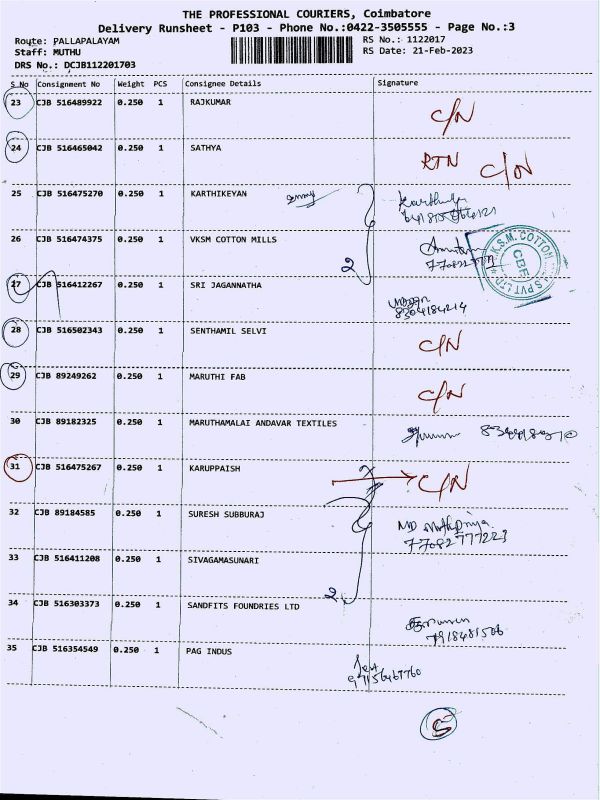 THE PROFESSIONAL COURIERS, Coimbatore
Delivery Runsheet - P103 - Phone No.:0422-3505555 - Page No.:3
Route: PALLAPALAYAM RS No.: 1122017
Staff: MUTHU RS Date: 21-Feb-2023
DRS No.: DCJB112201703
S No Consignment No Weight PCS Consignee Details Signature
23 CJB 516489922 0.250 1 RAJKUMAR C/N
24 CJB 516465042 0.250 1 SATHYA RTN C/N
25 CJB 516475270 0.250 1 KARTHIKEYAN
26 CJB 516474375 0.250 1 VKSM COTTON MILLS 2
27 CJB 516412267 0.250 1 SRI JAGANNATHA
8304184214
28 CJB 516502343 0.250 1 SENTHAMIL SELVI C/N
29 CJB 89249262 0.250 1 MARUTHI FAB C/N
30 CJB 89182325 0.250 1 MARUTHAMALAI ANDAVAR TEXTILES
31 CJB 516475267 0.250 1 KARUPPAISH C/N
32 CJB 89184585 0.250 1 SURESH SUBBURAJ
7708277223
33 CJB 516411208 0.250 1 SIVAGAMASUNARI
34 CJB 516303373 0.250 1 SANDFITS FOUNDRIES LTD 2
7918481506
35 CJB 516354549 0.250 1 PAG INDUS
5